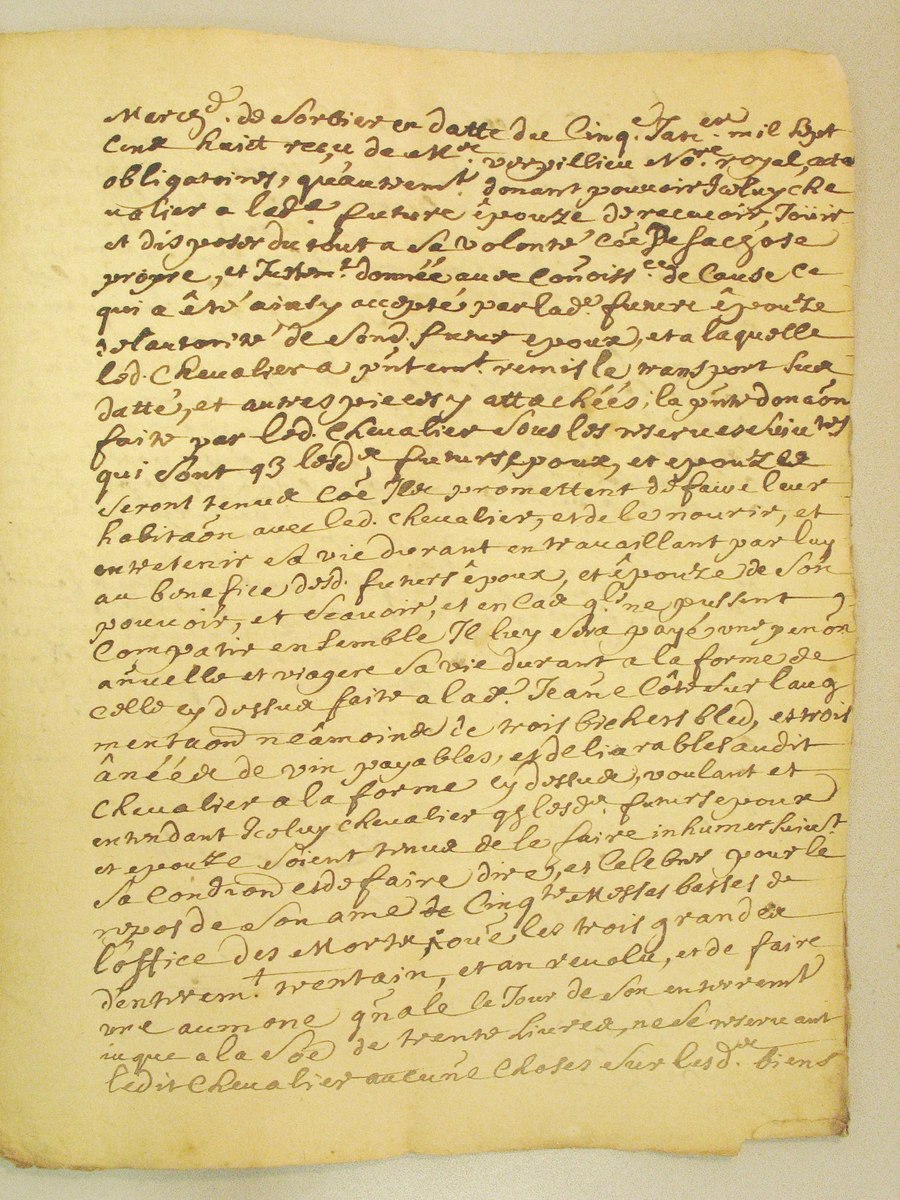 March.d de Sorbier en datte du Cinq.e Janv.er mil Sept
Cent huitt reçu de M.re verpillieu No.re royal, acte
obligatoires, qu'autrem.t donant pouvoir Iceluy che
valier a lad.e future êpouze de recevoir, Joüir
et disposer du tout a sa volonté Cõe de sa chose
propre, et Justem.t donnée avec Conoiss.ce de Cause ce
qui a êté ainsy accepté par lad.e future êpouze
de l'autorité de sond. futur epoux, et a laquelle
led. Chevalier a pñtem.t remis le transport sus
datté, et autres pieces y attachéés, la pñte donãon
faite par led. Chevalier sous les reserves suiv.tes
qui sont q3 lesd.s futurs epoux, et epouze
seront tenus Cõe Ils promettent de faire leur
habitãon avec led. Chevalier, et de le nourir, et
entretenir sa vie durant en travaillant par luy
au benefice desd. futurs êpoux, et êpouze de Son
pouvoir, et scavoir, et en Cas q.ls ne pussent
Compatir ensemble Il luy sera payé une penõn
añuelle et viagere sa vie durant a la forme de
celle cy dessus faite a lad.e Jeañe Côte sur l'aug
mentaõn neâmoins de trois bichets bled, et trois
ânéés de vin payables, et delivrables audit
Chevalier a la forme cy dessus, voulant et
entendant Iceluy Chevalier q3 lesd.s futurs epoux
et epouze soient tenus de le faire inhumer suiv.t
sa Condiõn et de faire dire, et Celebrer pour le
repos de Son ame de Cinq.te Messes basses de
l'office des Morts, oûe les trois grandes
d'enterrem.t trentain, et an revolu, et de faire
une aumone g'ñale le Jour de Son enterrem.t
iuque a la Sõe de trente Livres, ne se reservant
ledit Chevalier aucuñe Choses sur lesd.ts biens